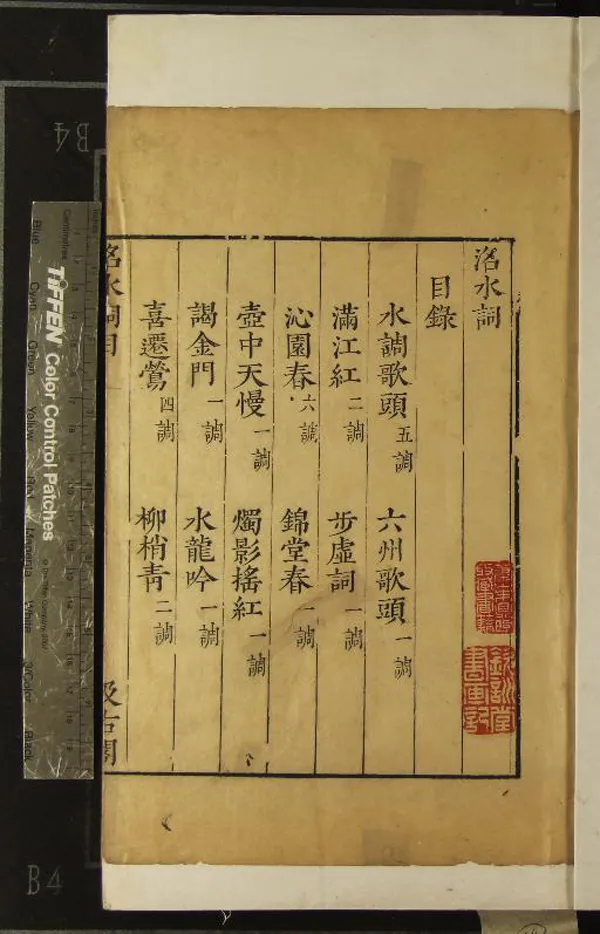 洺水詞
目錄
水調歌頭 五調 六州歌頭 一調
滿江紅 二調 步虛詞 一調
沁園春 六調 錦堂春 一調
壺中天慢 一調 燭影搖紅 一調
謁金門 一調 水龍吟 一調
喜遷鶯 四調 柳梢青 二調
洺水詞目
汲古閣
B4
B4
TIFFEN Color Control Patches
Centimetres
Blue
Cyan
Green
Yellow
Red
Magenta
White
3/Color
Black